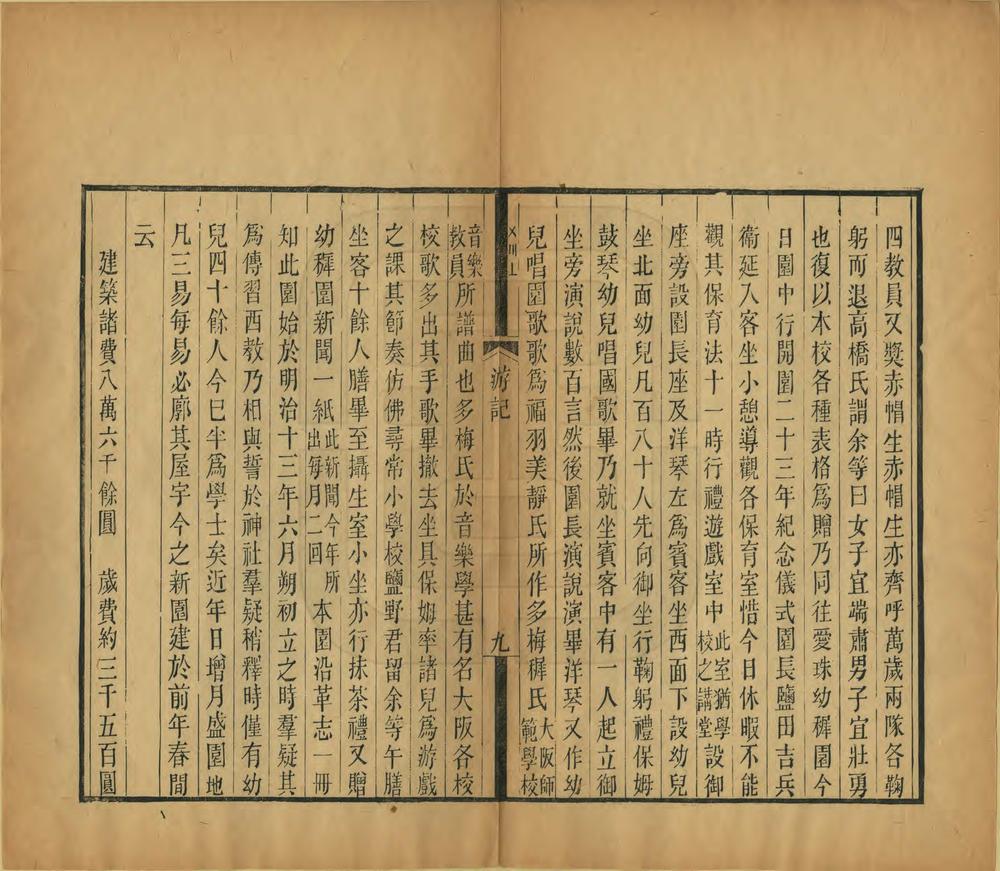 四教員又獎赤帽生赤帽生亦齊呼萬歲兩隊各鞠
躬而退高橋氏謂余等曰女子宜端肅男子宜壯勇
也復以本校各種表格爲贈乃同往愛珠幼穉園今
日園中行開園二十三年紀念儀式園長鹽田吉兵
衛延入客坐小憩導觀各保育室惜今日休暇不能
觀其保育法十一時行禮遊戲室中此室猶學校之講堂設御
座旁設園長座及洋琴左爲賓客坐西面下設幼兒
坐北面幼兒凡百八十人先向御坐行鞠躬禮保姆
鼓琴幼兒唱國歌畢乃就坐賓客中有一人起立御
坐旁演說數百言然後園長演說演畢洋琴又作幼
兒唱園歌歌爲福羽美靜氏所作多梅穉氏大阪師範學校
游記
九
音樂教員所譜曲也多梅氏於音樂學甚有名大阪各校
校歌多出其手歌畢撤去坐具保姆率諸兒爲游戲
之課其節奏仿佛尋常小學校鹽野君留余等午膳
坐客十餘人膳畢至攝生室小坐亦行抹茶禮又贈
幼穉園新聞一紙此新聞今年所出每月二回本園沿革志一冊
知此園始於明治十三年六月朔初立之時羣疑其
爲傳習西教乃相與誓於神社羣疑稍釋時僅有幼
兒四十餘人今已半爲學士矣近年日增月盛園地
凡三易每易必廓其屋宇今之新園建於前年春間
云
建築諸費八萬六千餘圓　歲費約三千五百圓